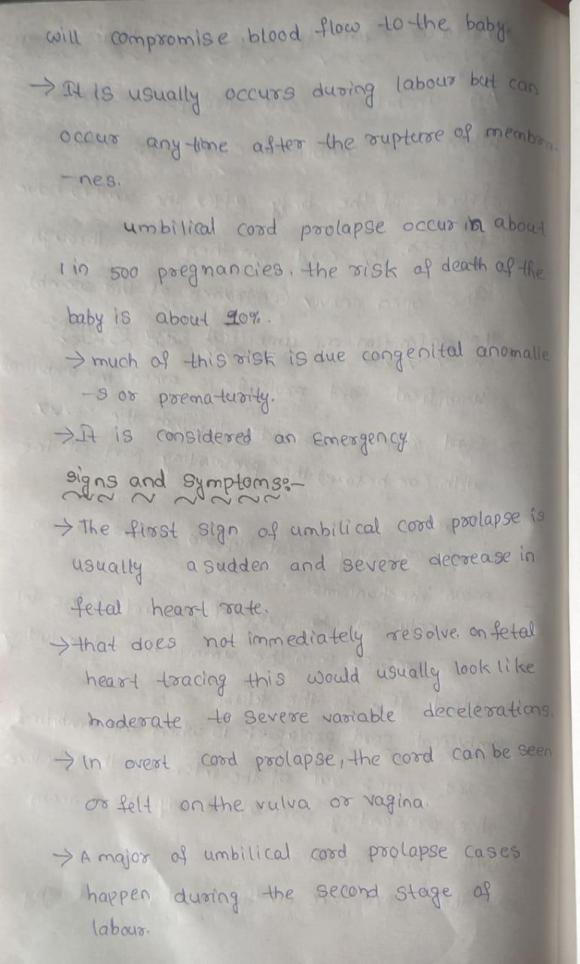 will compromise blood flow to the baby.
→ It is usually occurs during labour but can
occur any time after the rupture of membra
-nes.
umbilical cord prolapse occur in about
1 in 500 pregnancies. the risk of death of the
baby is about 10%.
→ much of this risk is due congenital anomalie
-s or prematurity.
→ It is considered an Emergency
signs and symptoms:-
→ The first sign of umbilical cord prolapse is
usually a sudden and severe decrease in
fetal heart rate.
→ that does not immediately resolve. on fetal
heart tracing this would usually look like
moderate to severe variable decelerations.
→ In overt cord prolapse, the cord can be seen
or felt on the vulva or vagina.
→ A major of umbilical cord prolapse cases
happen during the second stage of
labour.